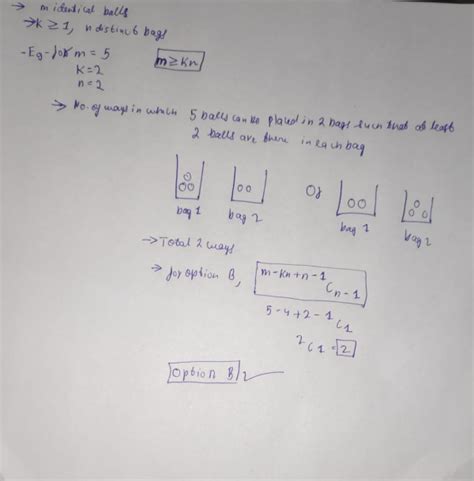 → m identical balls
→ K ≥ 1, n distinct bags
- Eg - for m = 5
K = 2
n = 2
m ≥ Kn
→ No. of ways in which 5 balls can be placed in 2 bags such that at least
2 balls are there in each bag
Or
bag 1
bag 2
bag 1
bag 2
→ Total 2 ways
→ for option B, m-kn+n-1 C n-1
5-4+2-1 C1
2C1 = 2
Option B